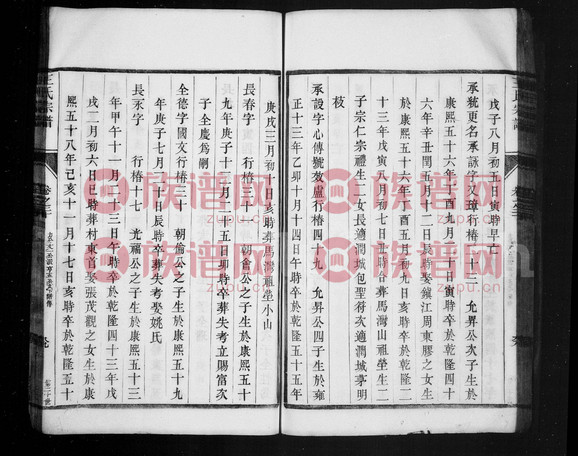 戊子八月初五日寅時早亡
承號更名承詠字又瓊行椿十二 允昇公次子生於
康熙五十六年丁酉九月十一日寅時卒於乾隆四十
六年辛丑閏五月十二日辰時娶鎮江周東膠之女生
於康熙五十六年丁酉五月初九日亥時卒於乾隆二
十三年戊寅八月初七日丑時合葬馬灣山祖塋生二
子宗仁宗禮生二女長適潤城包聖符次適潤城茅明
枝
承設字心傳號效廬行椿四十九 允昇公四子生於雍
正十三年乙卯十月十四日午時卒於乾隆五十五年
庚戌三月初十日亥時葬馬灣祖塋小山
長春字 行椿三十一 朝俞公之子生於康熙五十
九年庚子十二月二十五日卯時卒葬失考立賜富次
子全慶為嗣
全德字國文行椿三十 朝倫公之子生於康熙五十九
年庚子七月二十日辰時卒葬失考娶姚氏
長永字 行椿十七 光福公之子生於康熙五十三
年甲午十一月二十三日午時卒於乾隆四十三年戊
戌二月初六日巳時葬村東首娶張茂觀之女生於康
熙五十八年己亥十一月十七日亥時卒於乾隆五十
王氏宗譜
卷之三
族谱网
zupu.cn
族谱网
zupu.cn
族谱网
zupu.cn
族谱网
zupu.cn